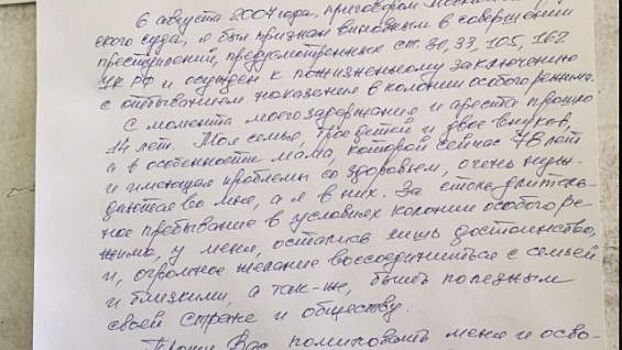 6 августа 2007 года, приговором Москов-
ского суда, я был признан виновным в совершении
преступлений, предусмотренных ст. 30, 33, 105, 162
УК РФ и осужден к пожизненному заключению
с отбыванием наказания в колонии особого режима.
С момента моего задержания и ареста прошло
14 лет. Моя семья, трое детей и двое внуков,
а в особенности мама, которой сейчас 78 лет
и имеющая проблемы со здоровьем, очень нуж-
даются во мне, а я в них. За столь длитель-
ное пребывание в условиях колонии особого ре-
жима, у меня, осталив лишь достоинство,
и, огромное желание воссоединиться с семьей
и близкими, а так-же, быть полезным
своей стране и обществу.
Прошу Вас помиловать меня и осво-